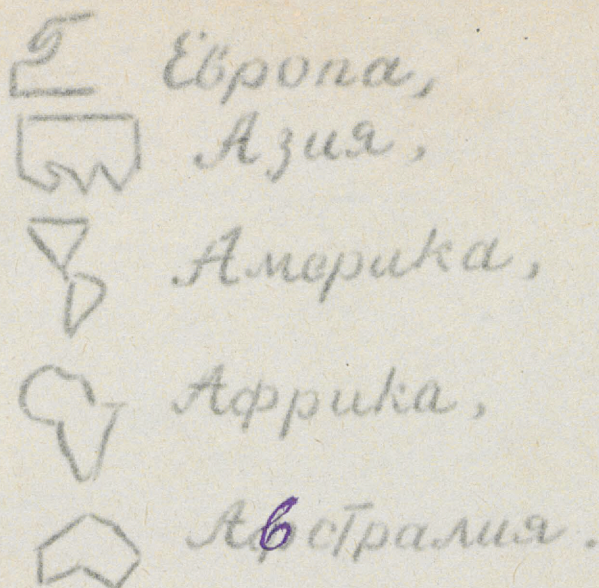 Европа,
Азия,
Америка,
Африка,
Австралия.